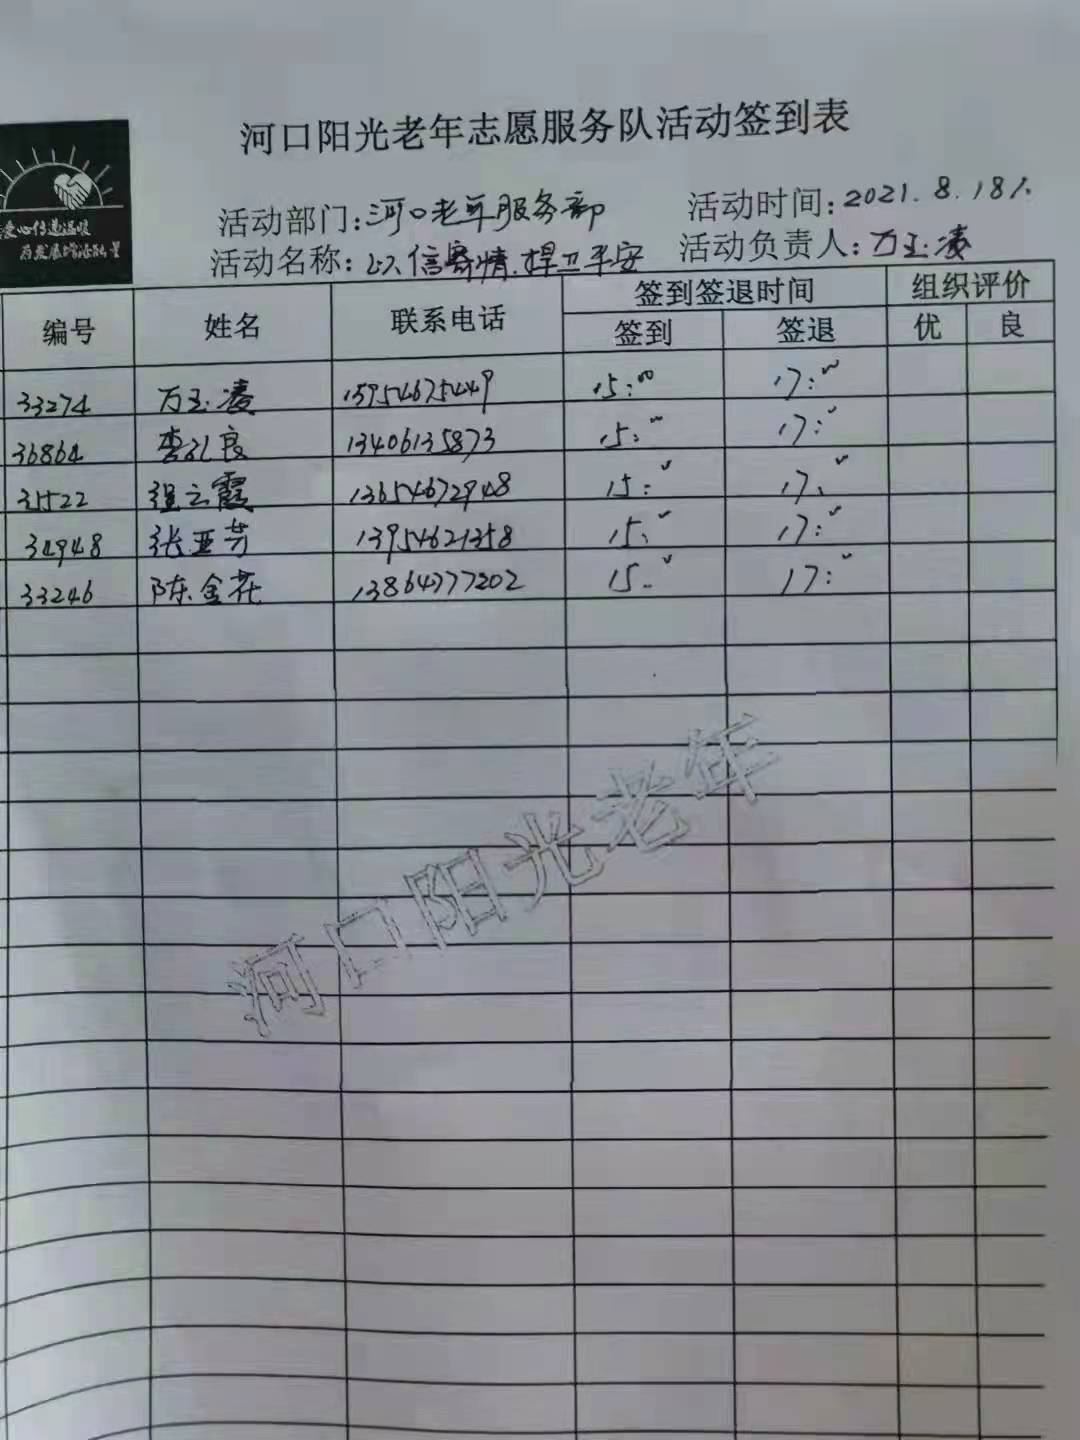 河口阳光老年志愿服务队活动签到表
爱心传递温暖
活动部门:河口老年服务部 活动时间:2021.8.18下
活动名称:以信寄情.捍卫平安 活动负责人:万玉凌
编号 姓名 联系电话 签到签退时间 组织评价
签到 签退 优 良
33274 万玉凌 15954675449 15:00 17:00
36864 李孔良 13406135873 15:" 17:"
31522 程云霞 13654672948 15: 17:
34948 张亚芳 13954621358 15: 17:
33246 陈金花 13864777202 15: 17:
河口阳光老年